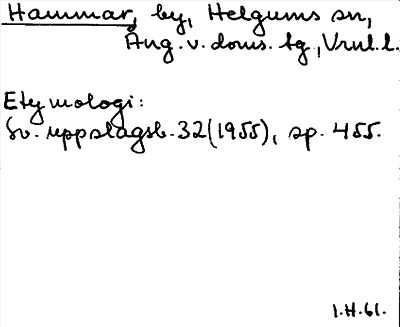 Hammar, by, Helgums sn,
Ång. v. doms. tg., Vrnl. l.
Etymologi:
Sv. uppslagsb. 32 (1955), sp. 455.
1.H.61.